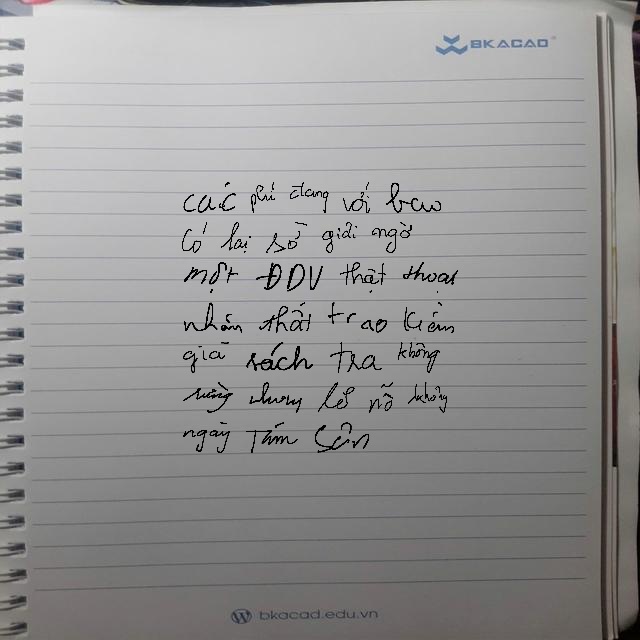 BKACAD
các phí đang với bao
có lại số giải ngờ
một ĐDV thật thoại
nhân thất trao kiếm
giá sách tra không
chung lẽ nỗ không
ngày Tám Sân
bkacad.edu.vn